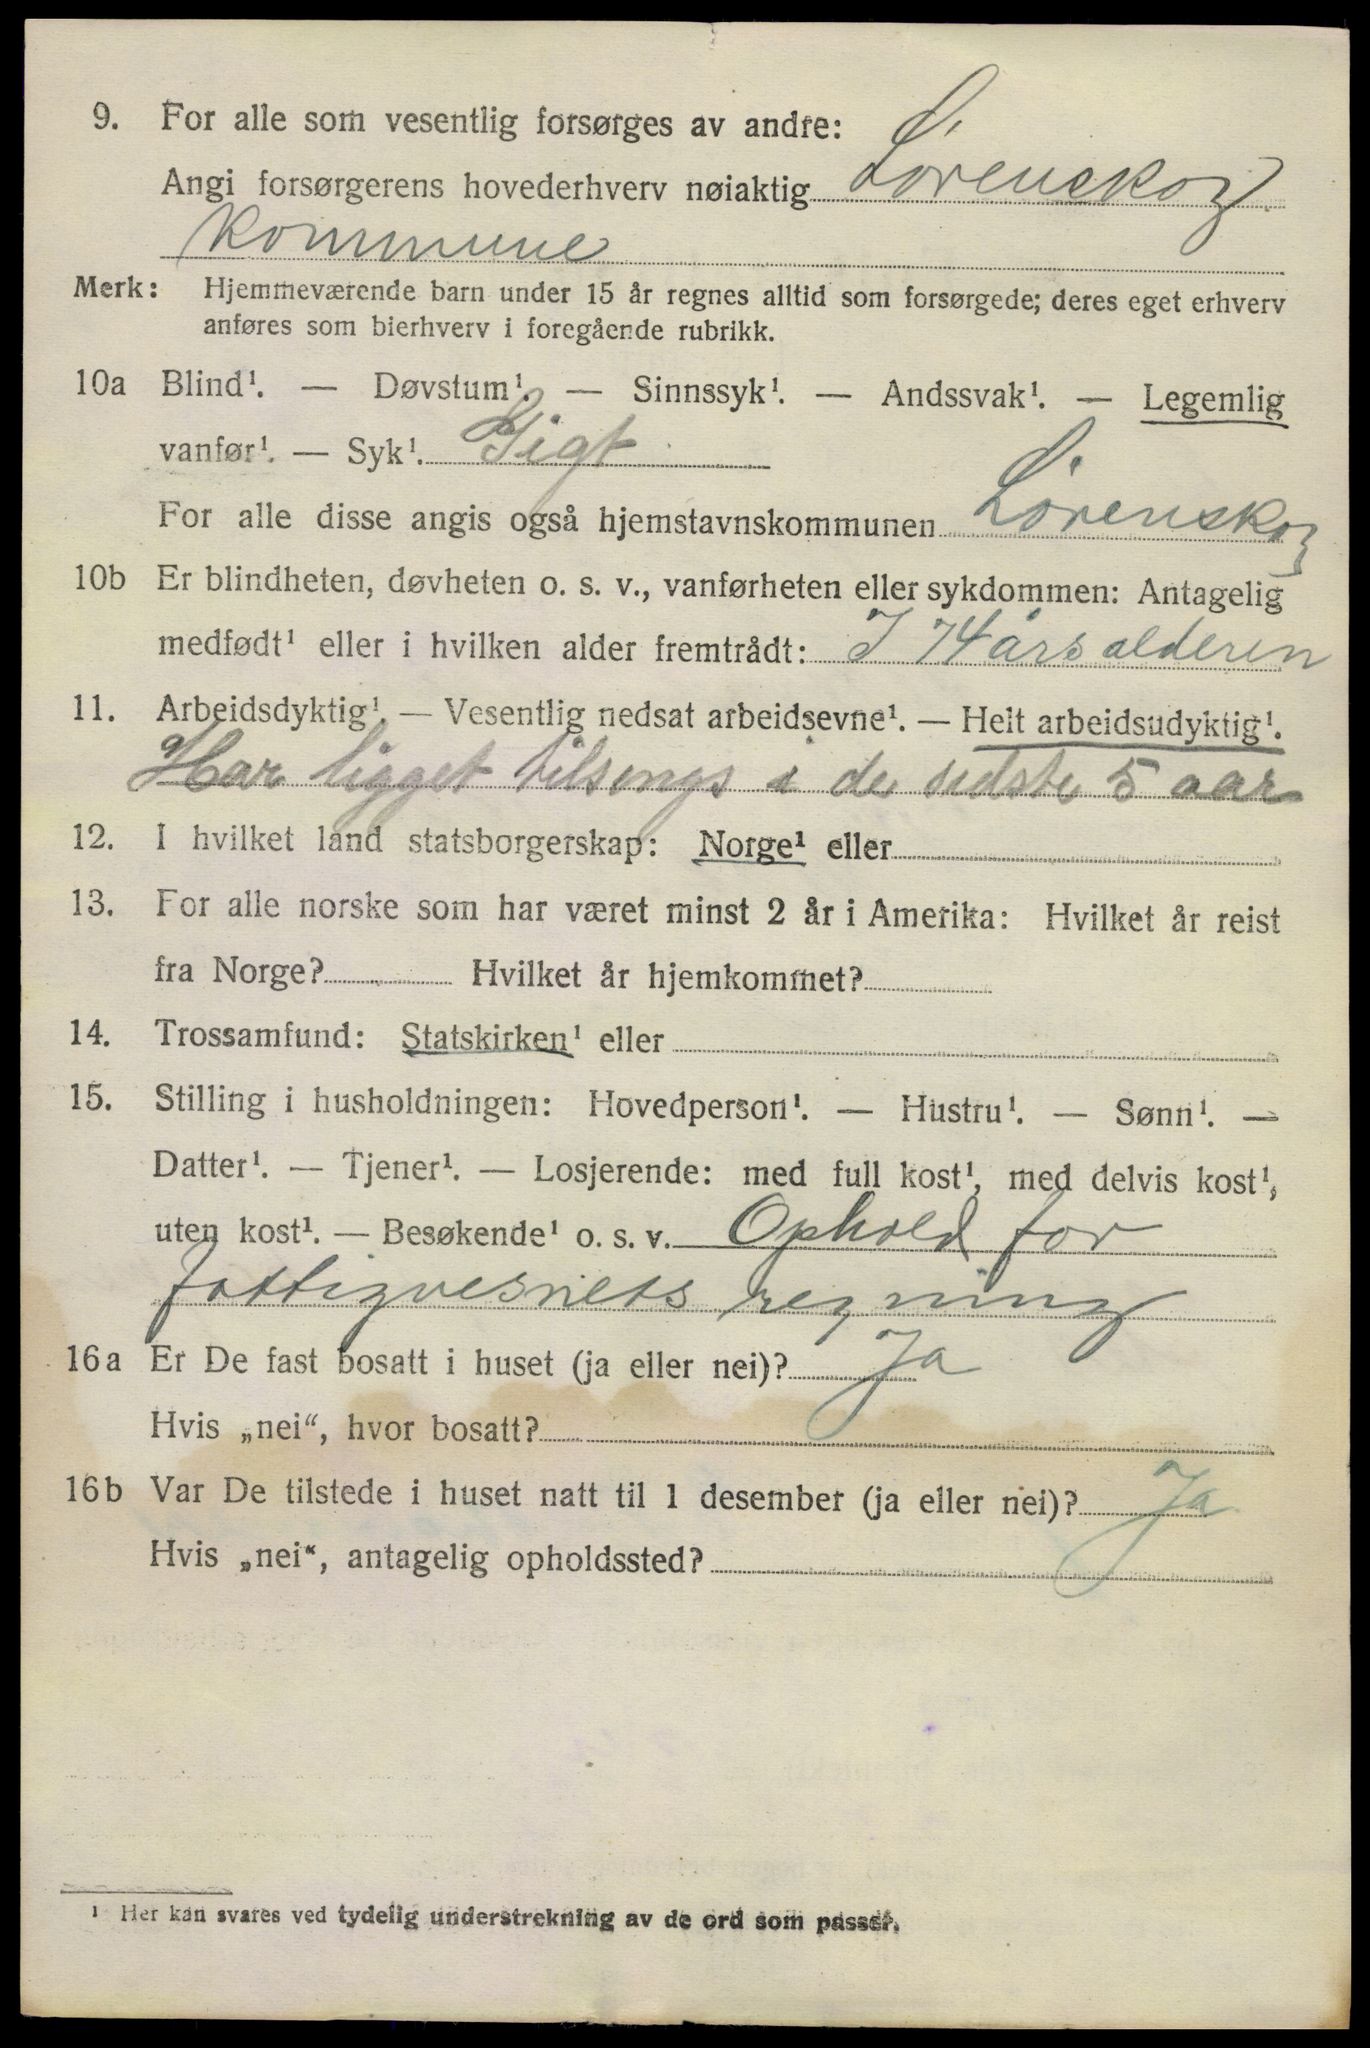 9. For alle som vesentlig forsørges av andre:
Angi forsørgerens hovederhverv nøiaktig Lørenskog
Kommune
Merk: Hjemmeværende barn under 15 år regnes alltid som forsørgede; deres eget erhverv
anføres som bierhverv i foregående rubrikk.
10a Blind¹. — Døvstum¹. — Sinnssyk¹. — Andssvak¹. — Legemlig
vanfør¹. — Syk¹. Gigt
For alle disse angis også hjemstavnskommunen Lørenskog
10b Er blindheten, døvheten o. s. v., vanførheten eller sykdommen: Antagelig
medfødt¹ eller i hvilken alder fremtrådt: I 74 års alderen
11. Arbeidsdyktig¹. — Vesentlig nedsat arbeidsevne¹. — Helt arbeidsudyktig¹.
Har ligget tilsengs i de sidste 5 aar
12. I hvilket land statsborgerskap: Norge¹ eller
13. For alle norske som har været minst 2 år i Amerika: Hvilket år reist
fra Norge? Hvilket år hjemkommet?
14. Trossamfund: Statskirken¹ eller
15. Stilling i husholdningen: Hovedperson¹. — Hustru¹. — Sønn¹. —
Datter¹. — Tjener¹. — Losjerende: med full kost¹, med delvis kost¹,
uten kost¹. — Besøkende¹ o. s. v. Ophold for
fattigvesnets regning
16a Er De fast bosatt i huset (ja eller nei)? Ja
Hvis „nei“, hvor bosatt?
16b Var De tilstede i huset natt til 1 desember (ja eller nei)? Ja
Hvis „nei“, antagelig opholdssted?
¹ Her kan svares ved tydelig understrekning av de ord som passer.